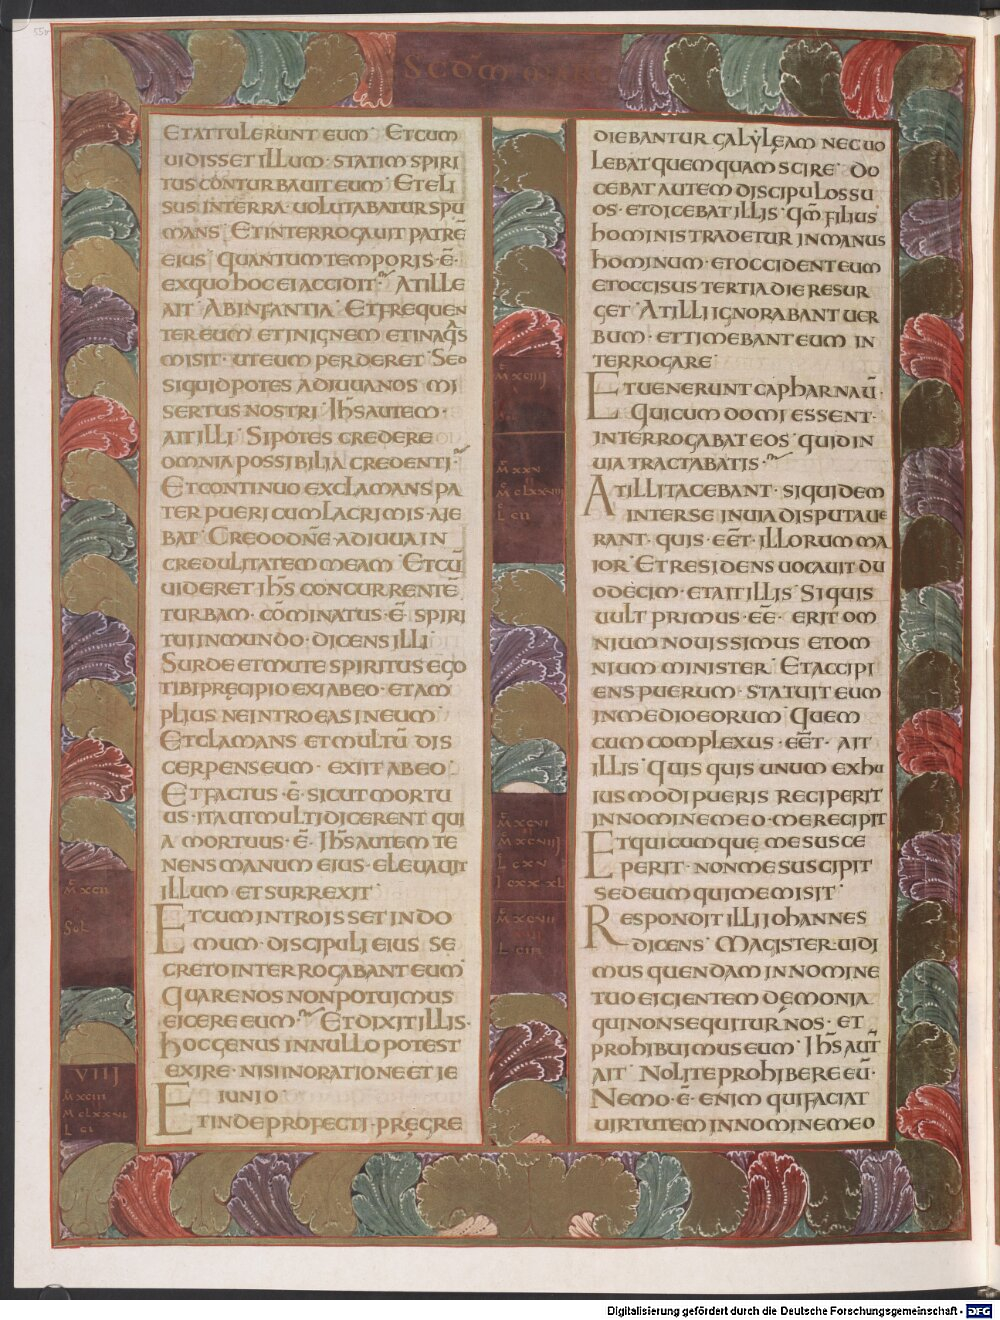 SCDM MARC
ET ATTULERUNT EUM · ET CUM
UIDISSET ILLUM · STATIM SPIRI
TUS CONTURBAUIT EUM · ET ELI
SUS IN TERRA · UOLUTABATUR SPU
MANS · ET INTERROGAUIT PATRĒ
EIUS · QUANTUM TEMPORIS · Ē ·
EX QUO HOC EI ACCIDIT · AT ILLE
AIT AB INFANTIA · ET FREQUEN
TER EUM ET IN IGNEM ET IN AQ̄S
MISIT · UT EUM PERDERET · SED
SI QUID POTES ADIUUA NOS MI
SERTUS NOSTRI · IH̄S AUTEM ·
AIT ILLI · SI POTES CREDERE
OMNIA POSSIBILIA CREDENTI ·
ET CONTINUO EXCLAMANS PA
TER PUERI CUM LACRIMIS · AIE
BAT · CREDO DN̄E · ADIUUA IN
CREDULITATEM MEAM · ET CŪ
UIDERET IH̄S CONCURRENTĒ
TURBAM · CŌMINATUS · Ē · SPIRI
TUI INMUNDO · DICENS ILLI
SURDE ET MUTE SPIRITUS EGO
TIBI PRĘCIPIO EXI AB EO · ET AM
PLIUS NE INTROEAS IN EUM ·
ET CLAMANS ET MULTŪ DIS
CERPENS EUM · EXIIT AB EO ·
ET FACTUS · Ē · SICUT MORTU
US · ITA UT MULTI DICERENT QUI
A MORTUUS · Ē · IH̄S AUTEM TE
NENS MANUM EIUS · ELEUAUIT
ILLUM ET SURREXIT ·
ET CUM INTROISSET IN DO
MUM · DISCIPULI EIUS SE
CRETO INTERROGABANT EUM ·
QUARE NOS NON POTUIMUS
EICERE EUM · ET DIXIT ILLIS ·
HOC GENUS IN NULLO POTEST
EXIRE · NISI IN ORATIONE ET IE
IUNIO
ET INDE PROFECTI · PRĘGRE
M̄ XCII
SOL
VIIJ
M̄ XCIII
M CLXXVI
L CI
M̄ XCIIIJ
M̄ XXV
L CII
M̄ XCVI
M̄ XCVIIJ
L CXV
M̄ XCVII
DIEBANTUR GALYLĘAM NEC UO
LEBAT QUEMQUAM SCIRE · DO
CEBAT AUTEM DISCIPULOS SU
OS · ET DICEBAT ILLIS · QM̄ FILIUS
HOMINIS TRADETUR IN MANUS
HOMINUM · ET OCCIDENT EUM
ET OCCISUS TERTIA DIE RESUR
GET · AT ILLI IGNORABANT UER
BUM · ET TIMEBANT EUM IN
TERROGARE ·
ET UENERUNT CAPHARNAŪ ·
QUI CUM DOMI ESSENT ·
INTERROGABAT EOS · QUID IN
UIA TRACTABATIS ·
AT ILLI TACEBANT · SIQUIDEM
INTER SE IN UIA DISPUTAUE
RANT · QUIS · EĒT · ILLORUM MA
IOR · ET RESIDENS UOCAUIT DU
ODECIM · ET AIT ILLIS · SI QUIS
UULT PRIMUS · EĒ · ERIT OM
NIUM NOUISSIMUS ET OM
NIUM MINISTER · ET ACCIPI
ENS PUERUM · STATUIT EUM
IN MEDIO EORUM · QUEM
CUM COMPLEXUS · EĒT · AIT
ILLIS · QUISQUIS UNUM EX HU
IUSMODI PUERIS RECIPERIT
IN NOMINE MEO · ME RECIPIT
ET QUICUMQUĘ ME SUSCE
PERIT · NON ME SUSCIPIT
SED EUM QUI ME MISIT ·
RESPONDIT ILLI IOHANNES
DICENS · MAGISTER · UIDI
MUS QUENDAM IN NOMINE
TUO EICIENTEM DĘMONIA
QUI NON SEQUITUR NOS · ET
PROHIBUIMUS EUM · IH̄S AUT̄
AIT · NOLITE PROHIBERE EŪ ·
NEMO · Ē · ENIM QUI FACIAT
UIRTUTEM IN NOMINE MEO
Digitalisierung gefördert durch die Deutsche Forschungsgemeinschaft - DFG